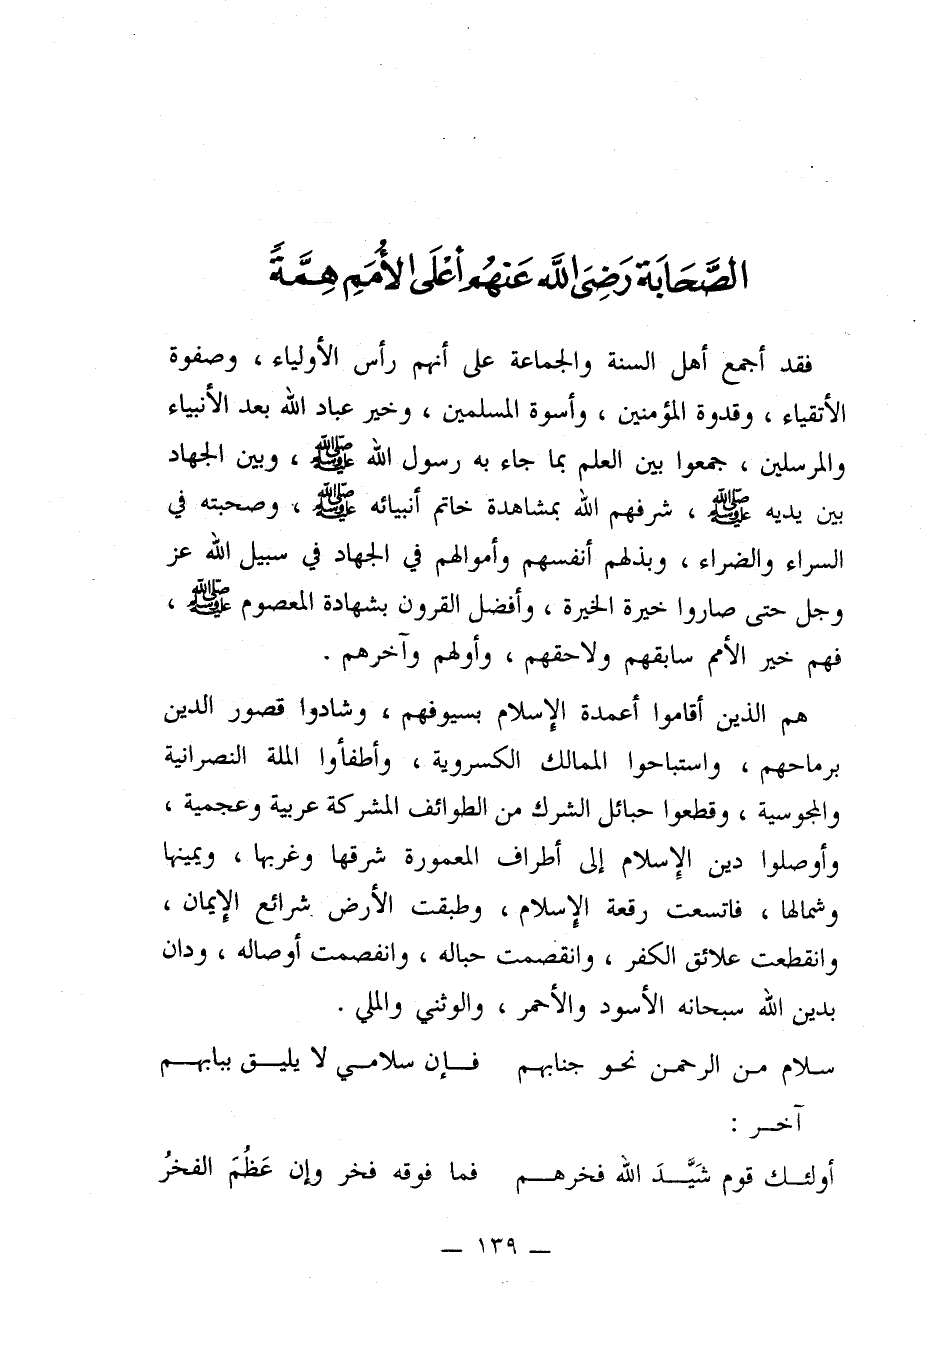 الصَّحَابَة رَضِيَ اللَّه عَنهُم أَعْلَى الأُمَمِ هِمَّةً
فقد أجمع أهل السنة والجماعة على أنهم رأس الأولياء ، وصفوة
الأتقياء ، وقدوة المؤمنين ، وأسوة المسلمين ، وخير عباد الله بعد الأنبياء
والمرسلين ، جمعوا بين العلم بما جاء به رسول الله ﷺ ، وبين الجهاد
بين يديه ﷺ ، شرفهم الله بمشاهدة خاتم أنبيائه ﷺ ، وصحبته في
السراء والضراء ، وبذلهم أنفسهم وأموالهم في الجهاد في سبيل الله عز
وجل حتى صاروا خيرة الخيرة ، وأفضل القرون بشهادة المعصوم ﷺ ،
فهم خير الأمم سابقهم ولاحقهم ، وأولهم وآخرهم .
هم الذين أقاموا أعمدة الإسلام بسيوفهم ، وشادوا قصور الدين
برماحهم ، واستباحوا الممالك الكسروية ، وأطفأوا الملة النصرانية
والمجوسية ، وقطعوا حبائل الشرك من الطوائف المشركة عربية وعجمية ،
وأوصلوا دين الإسلام إلى أطراف المعمورة شرقها وغربها ، ويمينها
وشمالها ، فاتسعت رقعة الإسلام ، وطبقت الأرض شرائع الإيمان ،
وانقطعت علائق الكفر ، وانقصمت حباله ، وانفصمت أوصاله ، ودان
بدين الله سبحانه الأسود والأحمر ، والوثني والملي .
سـلام مـن الرحمـن نحـو جنابهـم فـإن سلامـي لا يليـق ببابهـم
آخـر :
أولئـك قوم شَيَّـدَ الله فخرهـم فما فوقه فخر وإن عَظُمَ الفخرُ
— ١٣٩ —